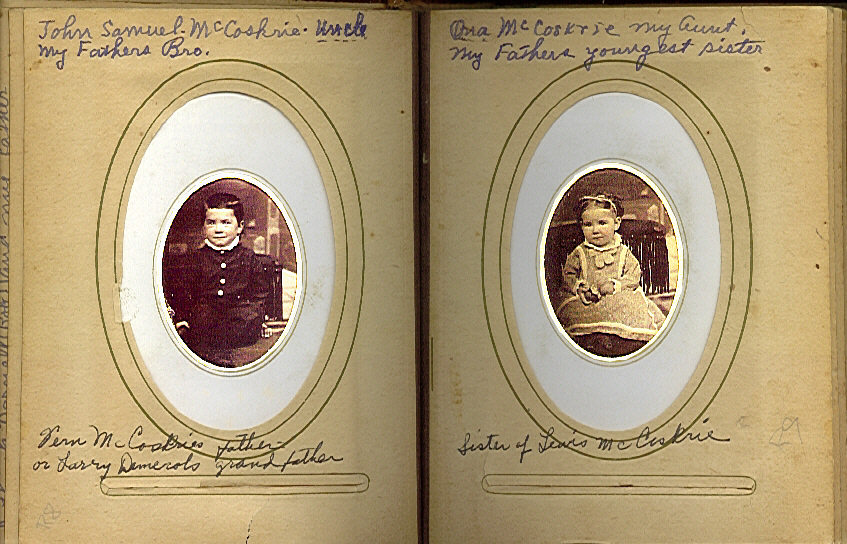 John Samuel McCoskrie - Uncle
my Fathers Bro.
Vern McCoskries father
or Larry Demerols grand father
Ona McCoskrie my Aunt.
my Fathers youngest sister
Sister of Lewis McCoskrie